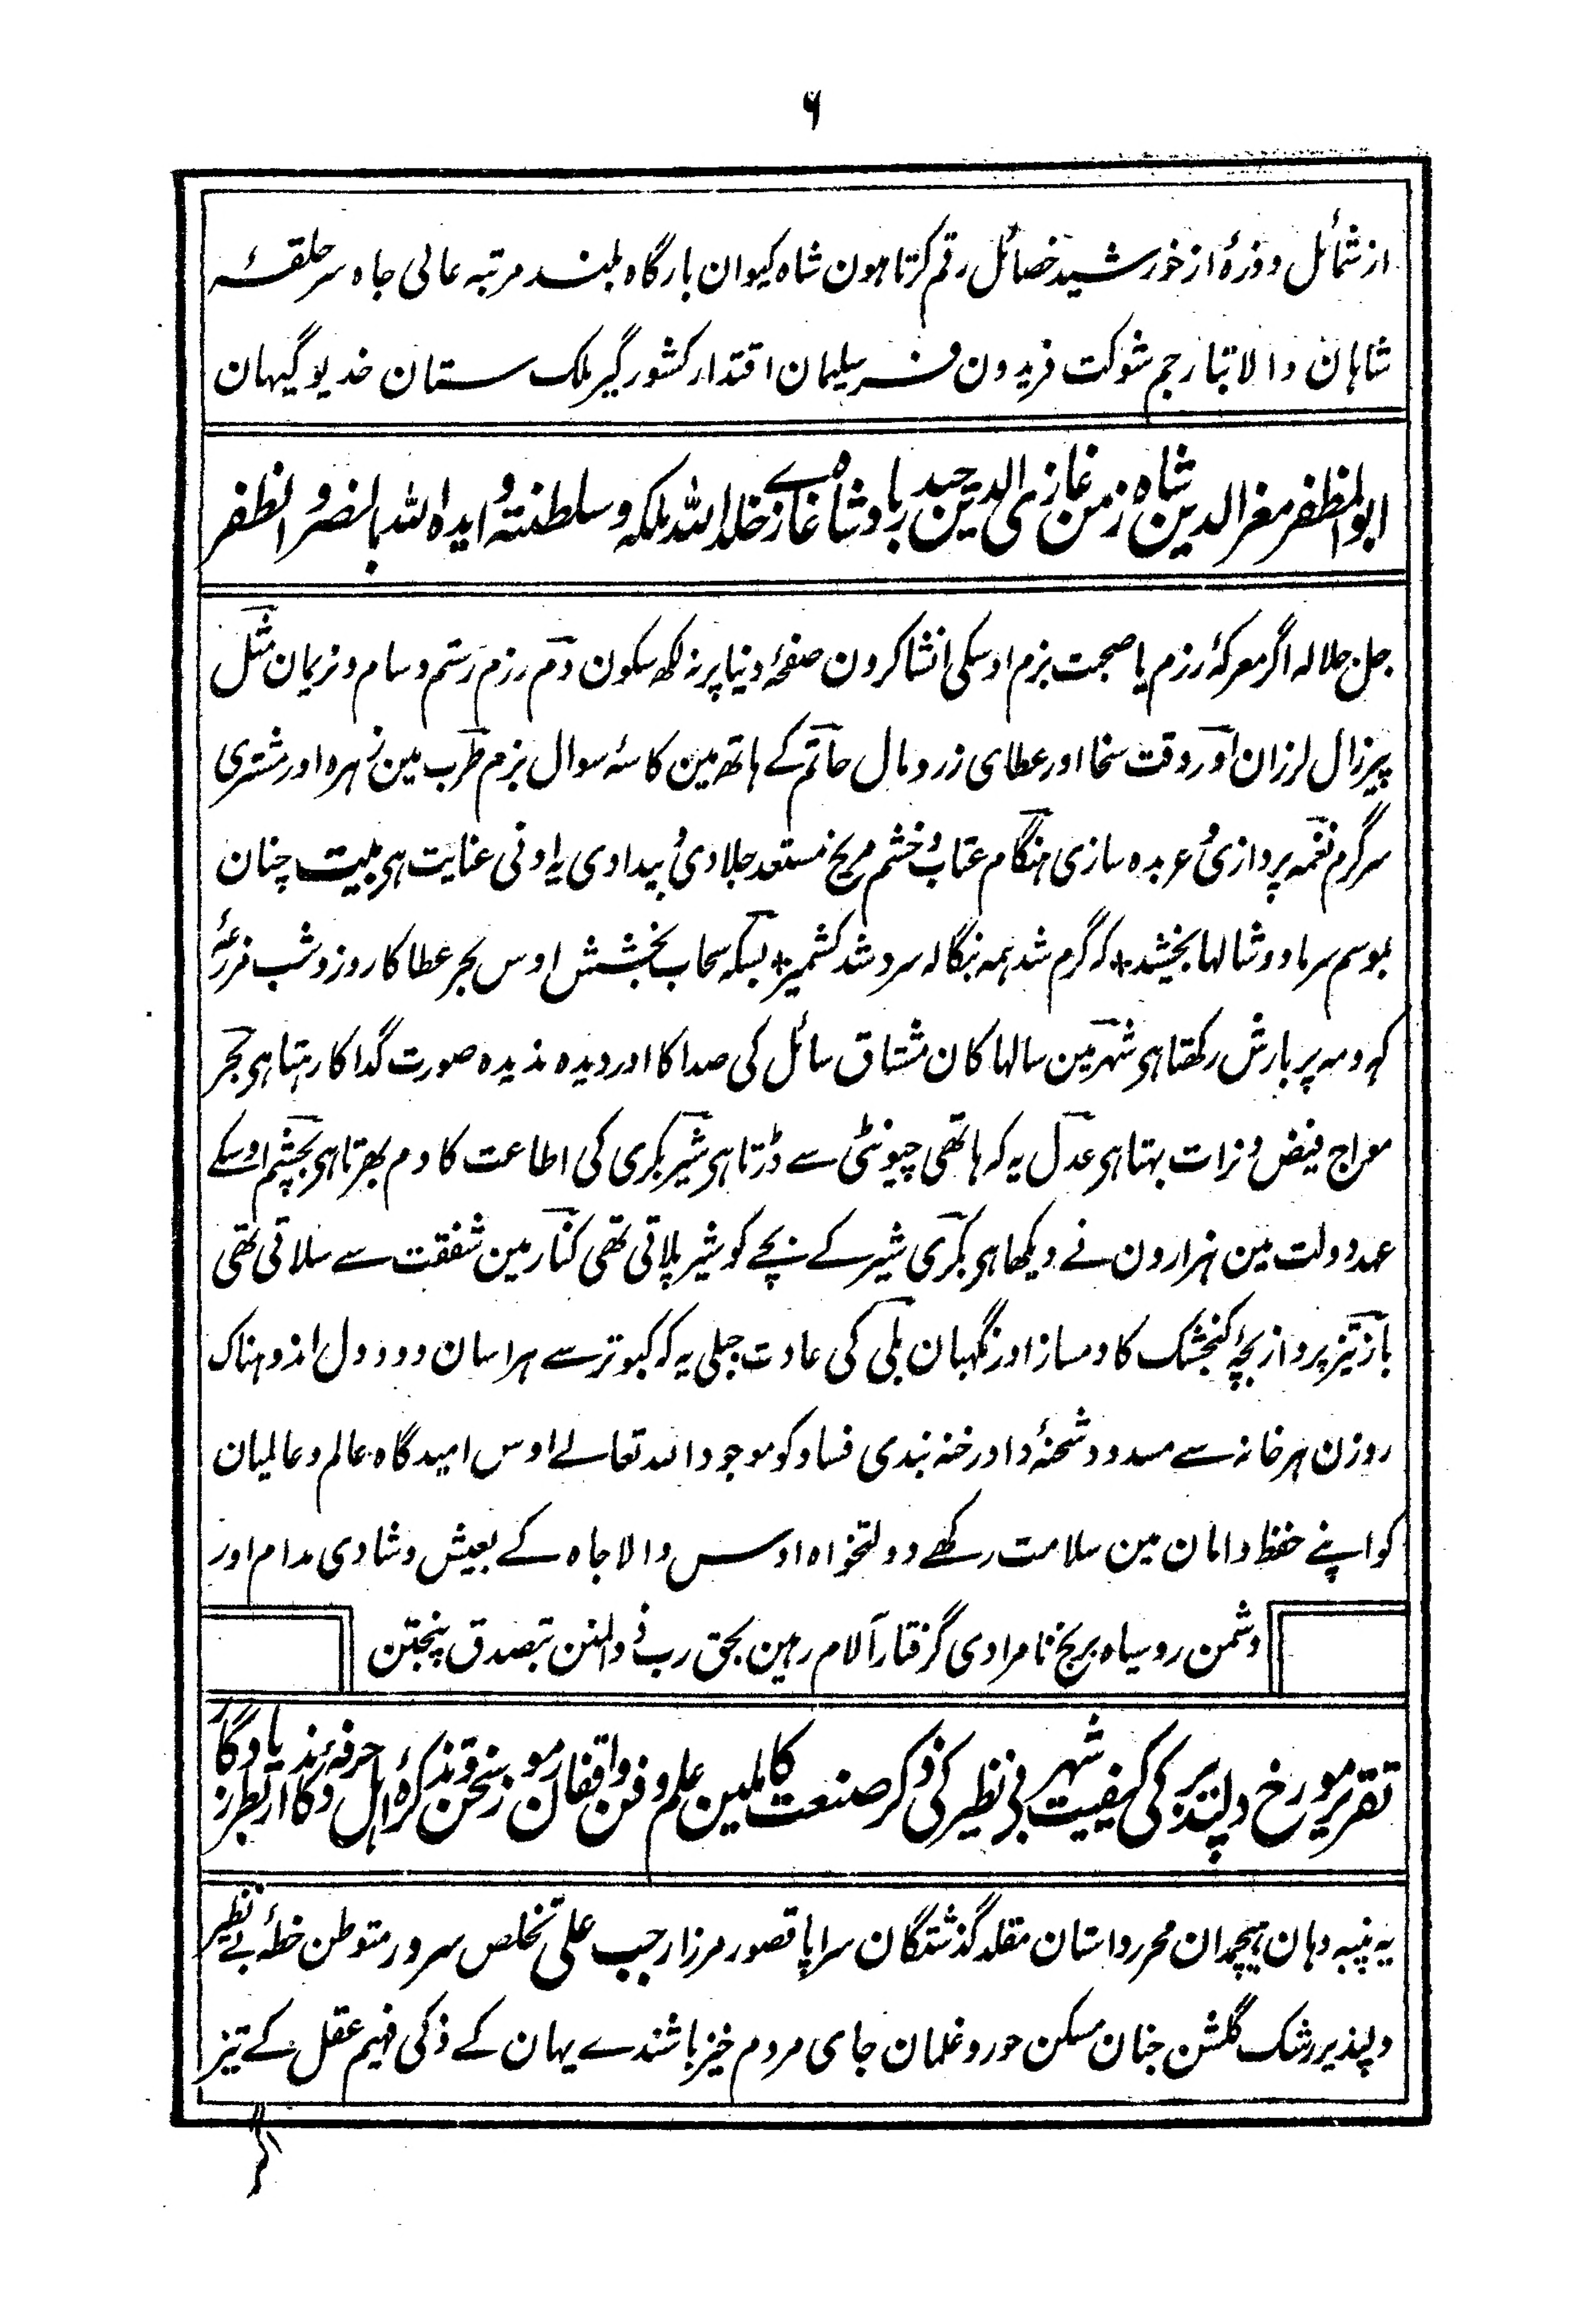 ۶
از شمائل و ذرۂ از خورشید خصائل رقم کرتا ہون شاہ کیوان بارگاہ بلند مرتبہ عالی جاہ سر حلقۂ
شاہان والا تبار جم شوکت فریدون فر سلیمان اقتدار کشورگیر ملک ستان خدیو گیہان
ابوالمظفر معز الدین شاہ زمن غازی الدین حیدر بادشاہ غازے خلد اللہ ملکہ و سلطنتہُ ایدہ اللہ بالنصر و الظفر
جل جلالہ اگر معرکۂ رزم یا صحبت بزم اوسکی انشا کرون صفحۂ دنیا پر نہ لکھ سکون دم رزم رستم و سام و نریمان مثل
پیر زال لرزان اور وقت سخا اور عطای زر و مال حاتم کے ہاتھ مین کاسۂ سوال بزم طرب مین زہرہ اور مشتری
سرگرم نغمہ پردازی و عربدہ سازی ہنگام عتاب و خشم مریخ مستعد جلادی و بیدادی یہ ادنی عنایت ہی بیت چنان
بموسم سرما دوشالہا بخشید + کہ گرم شد ہمہ بنگالہ سرد شد کشمیر + بسکہ سحاب بخشش اوس بحر عطا کا روز و شب مزرعۂ
کہ و مہ پر بارش رکھتا ہی شہر مین سالہا کان مشتاق سائل کی صدا کا اور دیدہ ندیدہ صورت گدا کا رہتا ہی بحر
مواج فیض و فرات بہتا ہی عدل یہ کہ ہاتھی چیونٹی سے ڈرتا ہی شیر بکری کی اطاعت کا دم بھرتا ہی بچشم اوسکے
عہد دولت مین ہزارون نے دیکھا ہی بکری شیر کے بچے کو شیر پلاتی تھی کنار مین شفقت سے سلاتی تھی
باز تیز پرواز بچۂ کنجشک کا دمساز اور نگہبان بلی کی عادت جبلی یہ کہ کبوتر سے ہراسان دود دل اندوہناک
روزن ہر خانہ سے مسدود شحنۂ داد رخنہ بندی فساد کو موجود اللہ تعالے اوس امیدگاہ عالم و عالمیان
کو اپنے حفظ و امان مین سلامت رکھے دولتخواہ اوس والا جاہ کے بعیش و شادی مدام اور
دشمن رو سیاہ برنج نامرادی گرفتار آلام رہین بحق رب ذوالمنن بتصدق پنجتن
تقریر مورخ دلپذیر کی کیفیت شہر بی نظیر کی ذکر صنعت کاملین علم و فن واقفان رموز سخن و تذکرۂ اہل حرفہ و دکاندار بطرز یادگار
یہ پنبہ دہان ہیچمدان محرر داستان مقلد گذشتگان سراپا قصور مرزا رجب علی تخلص سرور متوطن خطۂ بے نظیر
دلپذیر رشک گلشن جنان مسکن حور و غلمان جای مردم خیز باشندے یہان کے ذکی فہیم عقل کے تیز